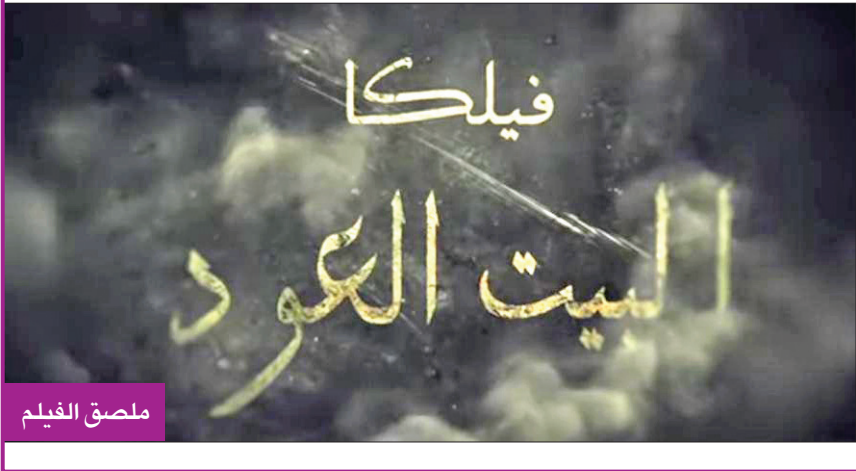 فيلكا
البيت العود
ملصق الفيلم